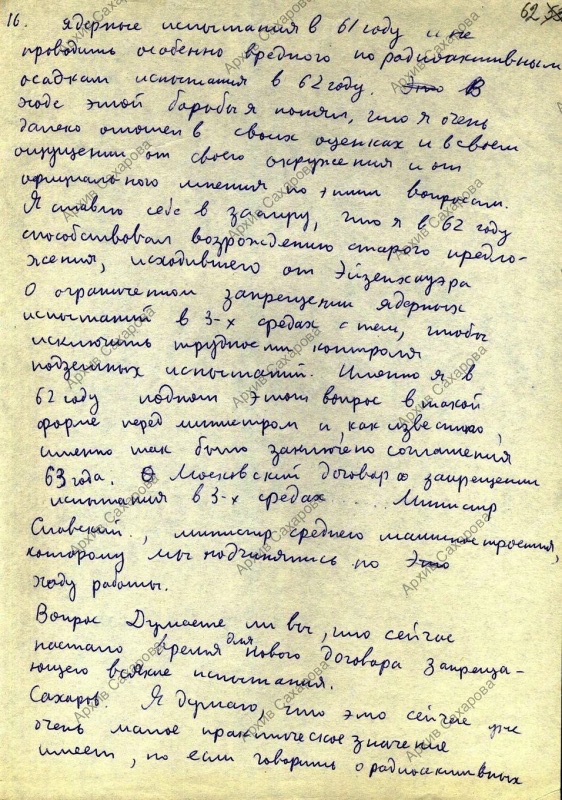 16. ядерные испытания в 61 году и не 62 58
проводить особенно вредного по радиоактивным
осадкам испытания в 62 году. Это В
ходе этой борьбы я понял, что я очень
далеко отошел в своих оценках и в своем
ощущении от своего окружения и от
официального мнения по этим вопросам.
Я ставлю себе в заслугу, что я в 62 году
способствовал возрождению старого предло-
жения, исходившего от Эйзенхауэра
о ограниченном запрещении ядерных
испытаний в 3-х средах с тем, чтобы
исключить трудности контроля
подземных испытаний. Именно я в
62 году поднял этот вопрос в такой
форме перед министром и, как известно,
именно так было заключено соглашения
63 года. О Московский договор о запрещении
испытания в 3-х средах..... Министр
Славский., министр среднего машиностроения,
которому мы подчинялись по Это
ходу работы.
Вопрос Думаете ли вы, что сейчас
настало время для нового договора запреща-
ющего всякие испытания.
Сахаров. Я думаю, что это сейчас уже
очень малое практическое значение
имеет, но если говорить о радиоактивных
Архив Сахарова